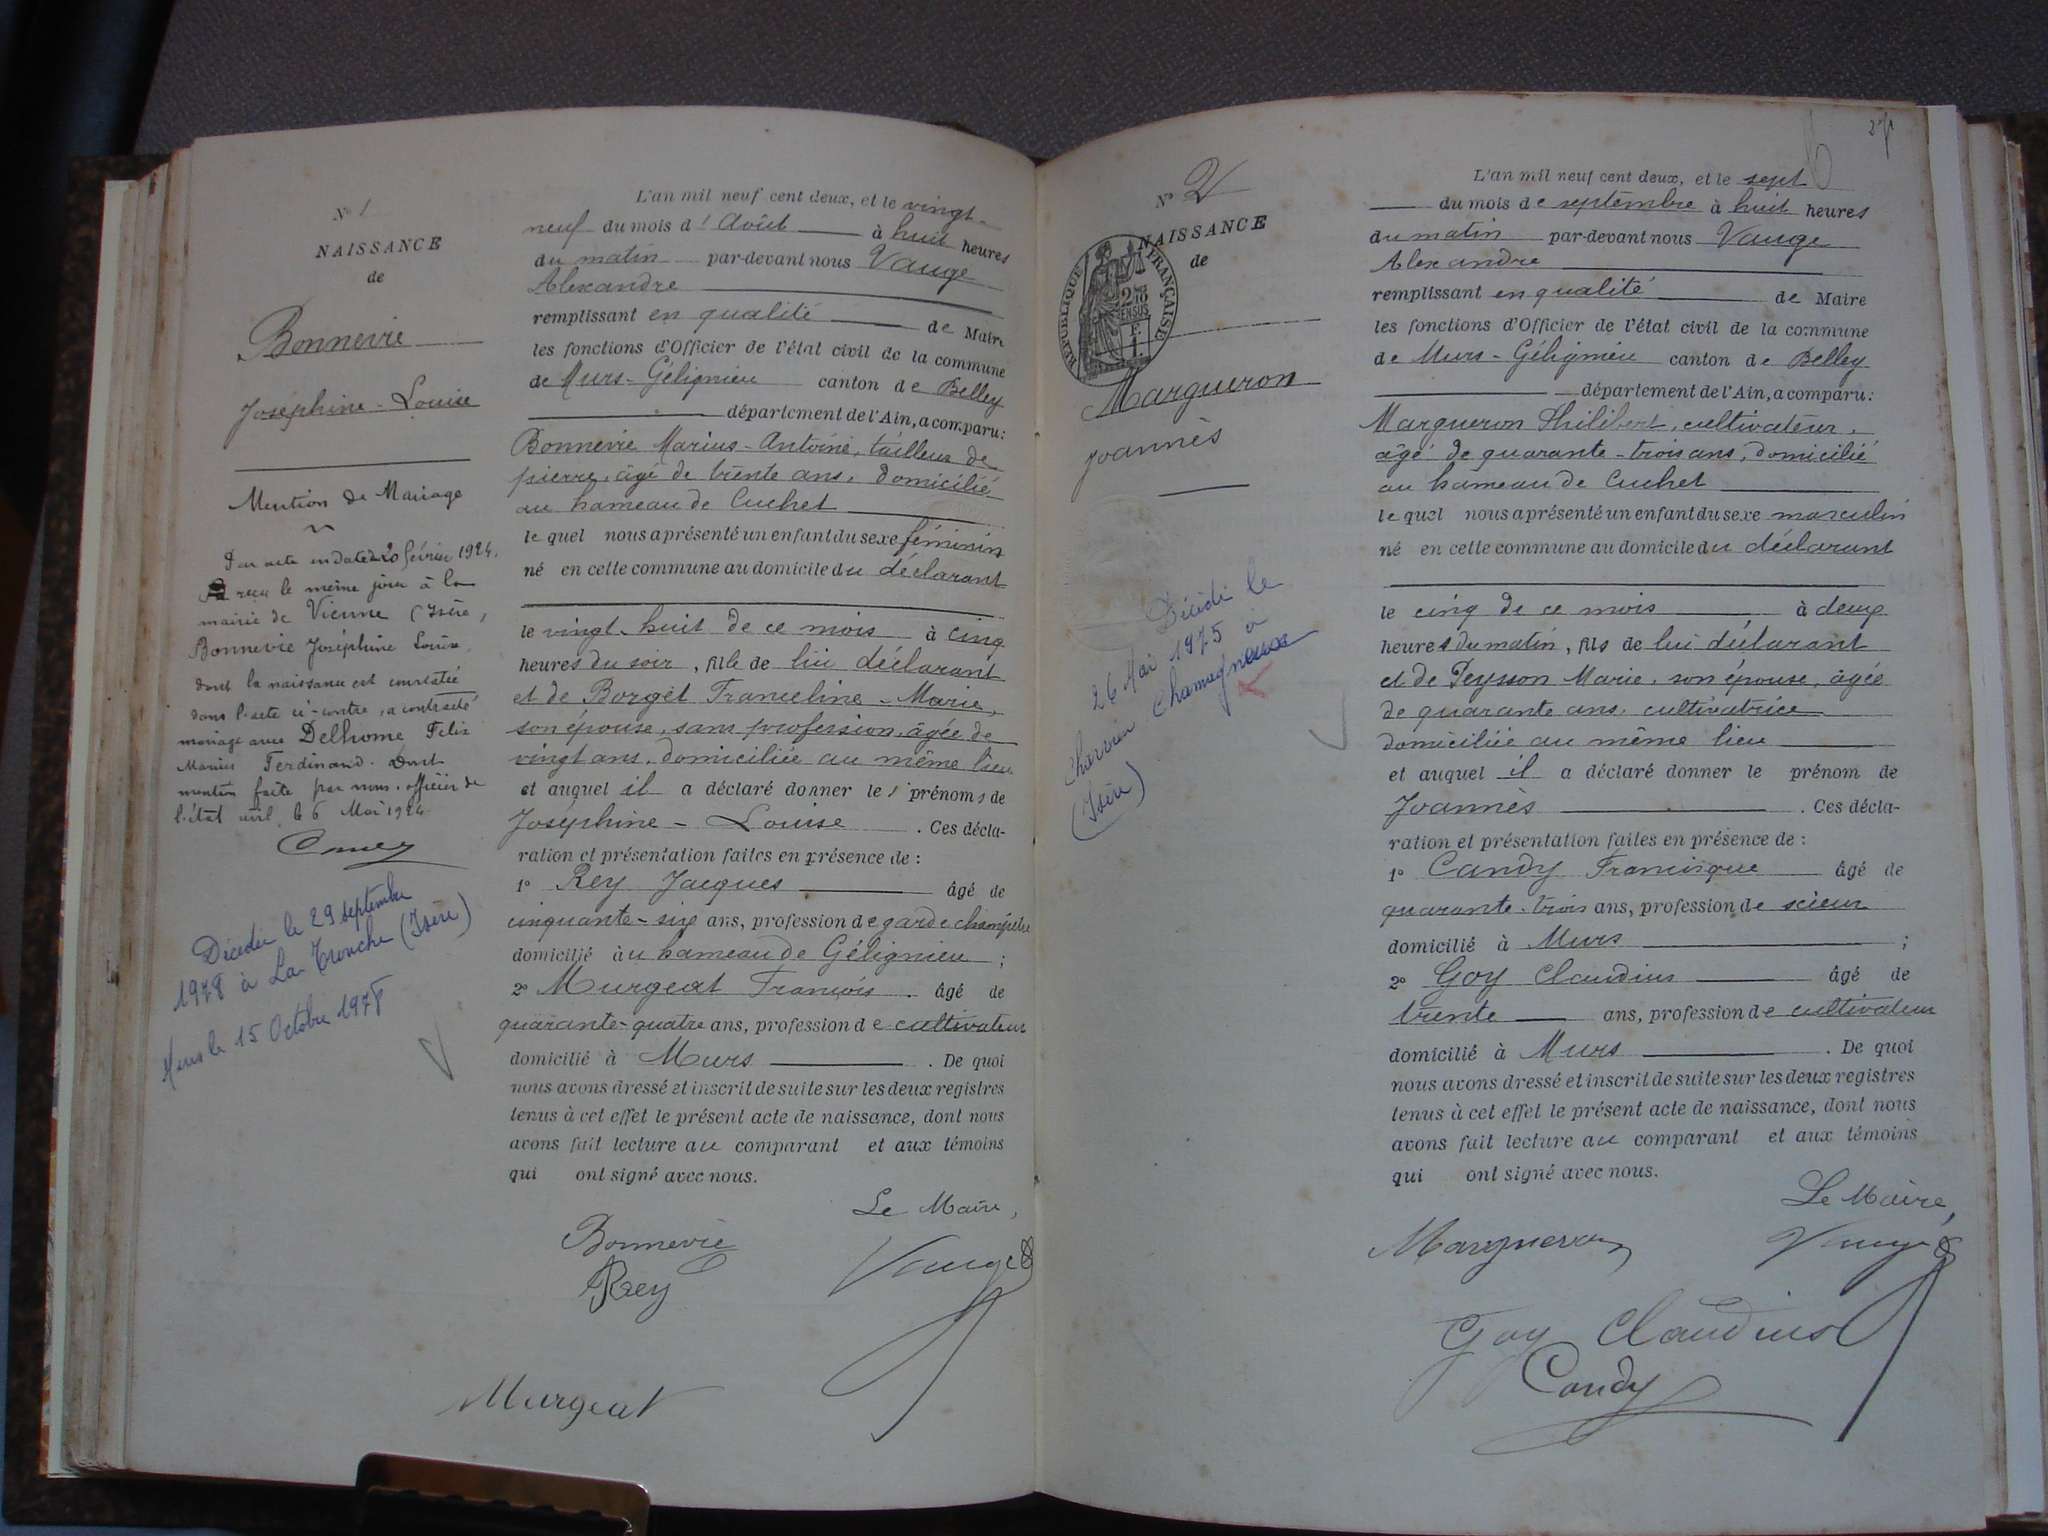 N° 1
NAISSANCE
de
Bonnevie
Joséphine - Louise
Mention de Mariage
Par acte en date du 20 février 1924.
reçu le même jour à la
mairie de Vienne (Isère,
Bonnevie Joséphine Louise
dont la naissance est constatée
dans l'acte ci-contre, a contracté
mariage avec Delhome Félix
Marius Ferdinand. Dont
mention faite par nous, officier de
l'état civil, le 6 Mai 1924
Décédée le 29 septembre
1978 à La Tronche (Isère)
le 15 Octobre 1978
L'an mil neuf cent deux, et le vingt-
neuf du mois d'Août à huit heures
du matin par-devant nous Vauge
Alexandre
remplissant en qualité de Maire
les fonctions d'Officier de l'état civil de la commune
de Murs-Gélignieu canton de Belley
département de l'Ain, a comparu:
Bonnevie Marius-Antoine, tailleur de
pierre, âgé de trente ans, domicilié
au hameau de Cuchet
lequel nous a présenté un enfant du sexe féminin
né en cette commune au domicile du déclarant
le vingt-huit de ce mois à cinq
heures du soir, fille de lui déclarant
et de Borget Franceline-Marie,
son épouse, sans profession, âgée de
vingt ans, domiciliée au même lieu
et auquel il a déclaré donner les prénoms de
Joséphine - Louise. Ces décla-
ration et présentation faites en présence de :
1° Rey Jacques âgé de
cinquante-six ans, profession de garde champêtre
domicilié au hameau de Gélignieu ;
2° Murgeat François âgé de
quarante-quatre ans, profession de cultivateur
domicilié à Murs. De quoi
nous avons dressé et inscrit de suite sur les deux registres
tenus à cet effet le présent acte de naissance, dont nous
avons fait lecture au comparant et aux témoins
qui ont signé avec nous.
Le Maire,
Bonnevie
Vauge
Rey
Murgeat
27
N° 2
NAISSANCE
de
RÉPUBLIQUE FRANÇAISE
Margueron
Joannès
Décédé le
26 Mai 1975 à
Charvieu Chavagneux
(Isère)
L'an mil neuf cent deux, et le sept
du mois de septembre à huit heures
du matin par-devant nous Vauge
Alexandre
remplissant en qualité de Maire
les fonctions d'Officier de l'état civil de la commune
de Murs-Gélignieu canton de Belley
département de l'Ain, a comparu:
Margueron Philibert, cultivateur,
âgé de quarante-trois ans, domicilié
au hameau de Cuchet
lequel nous a présenté un enfant du sexe masculin
né en cette commune au domicile du déclarant
le cinq de ce mois à deux
heures du matin, fils de lui déclarant
et de Peysson Marie, son épouse, âgée
de quarante ans, cultivatrice
domiciliée au même lieu
et auquel il a déclaré donner le prénom de
Joannès. Ces décla-
ration et présentation faites en présence de :
1° Candy Francisque âgé de
quarante-trois ans, profession de scieur
domicilié à Murs ;
2° Goy Claudius âgé de
trente ans, profession de cultivateur
domicilié à Murs. De quoi
nous avons dressé et inscrit de suite sur les deux registres
tenus à cet effet le présent acte de naissance, dont nous
avons fait lecture au comparant et aux témoins
qui ont signé avec nous.
Le Maire,
Margueron
Vauge
Goy Claudius
Candy